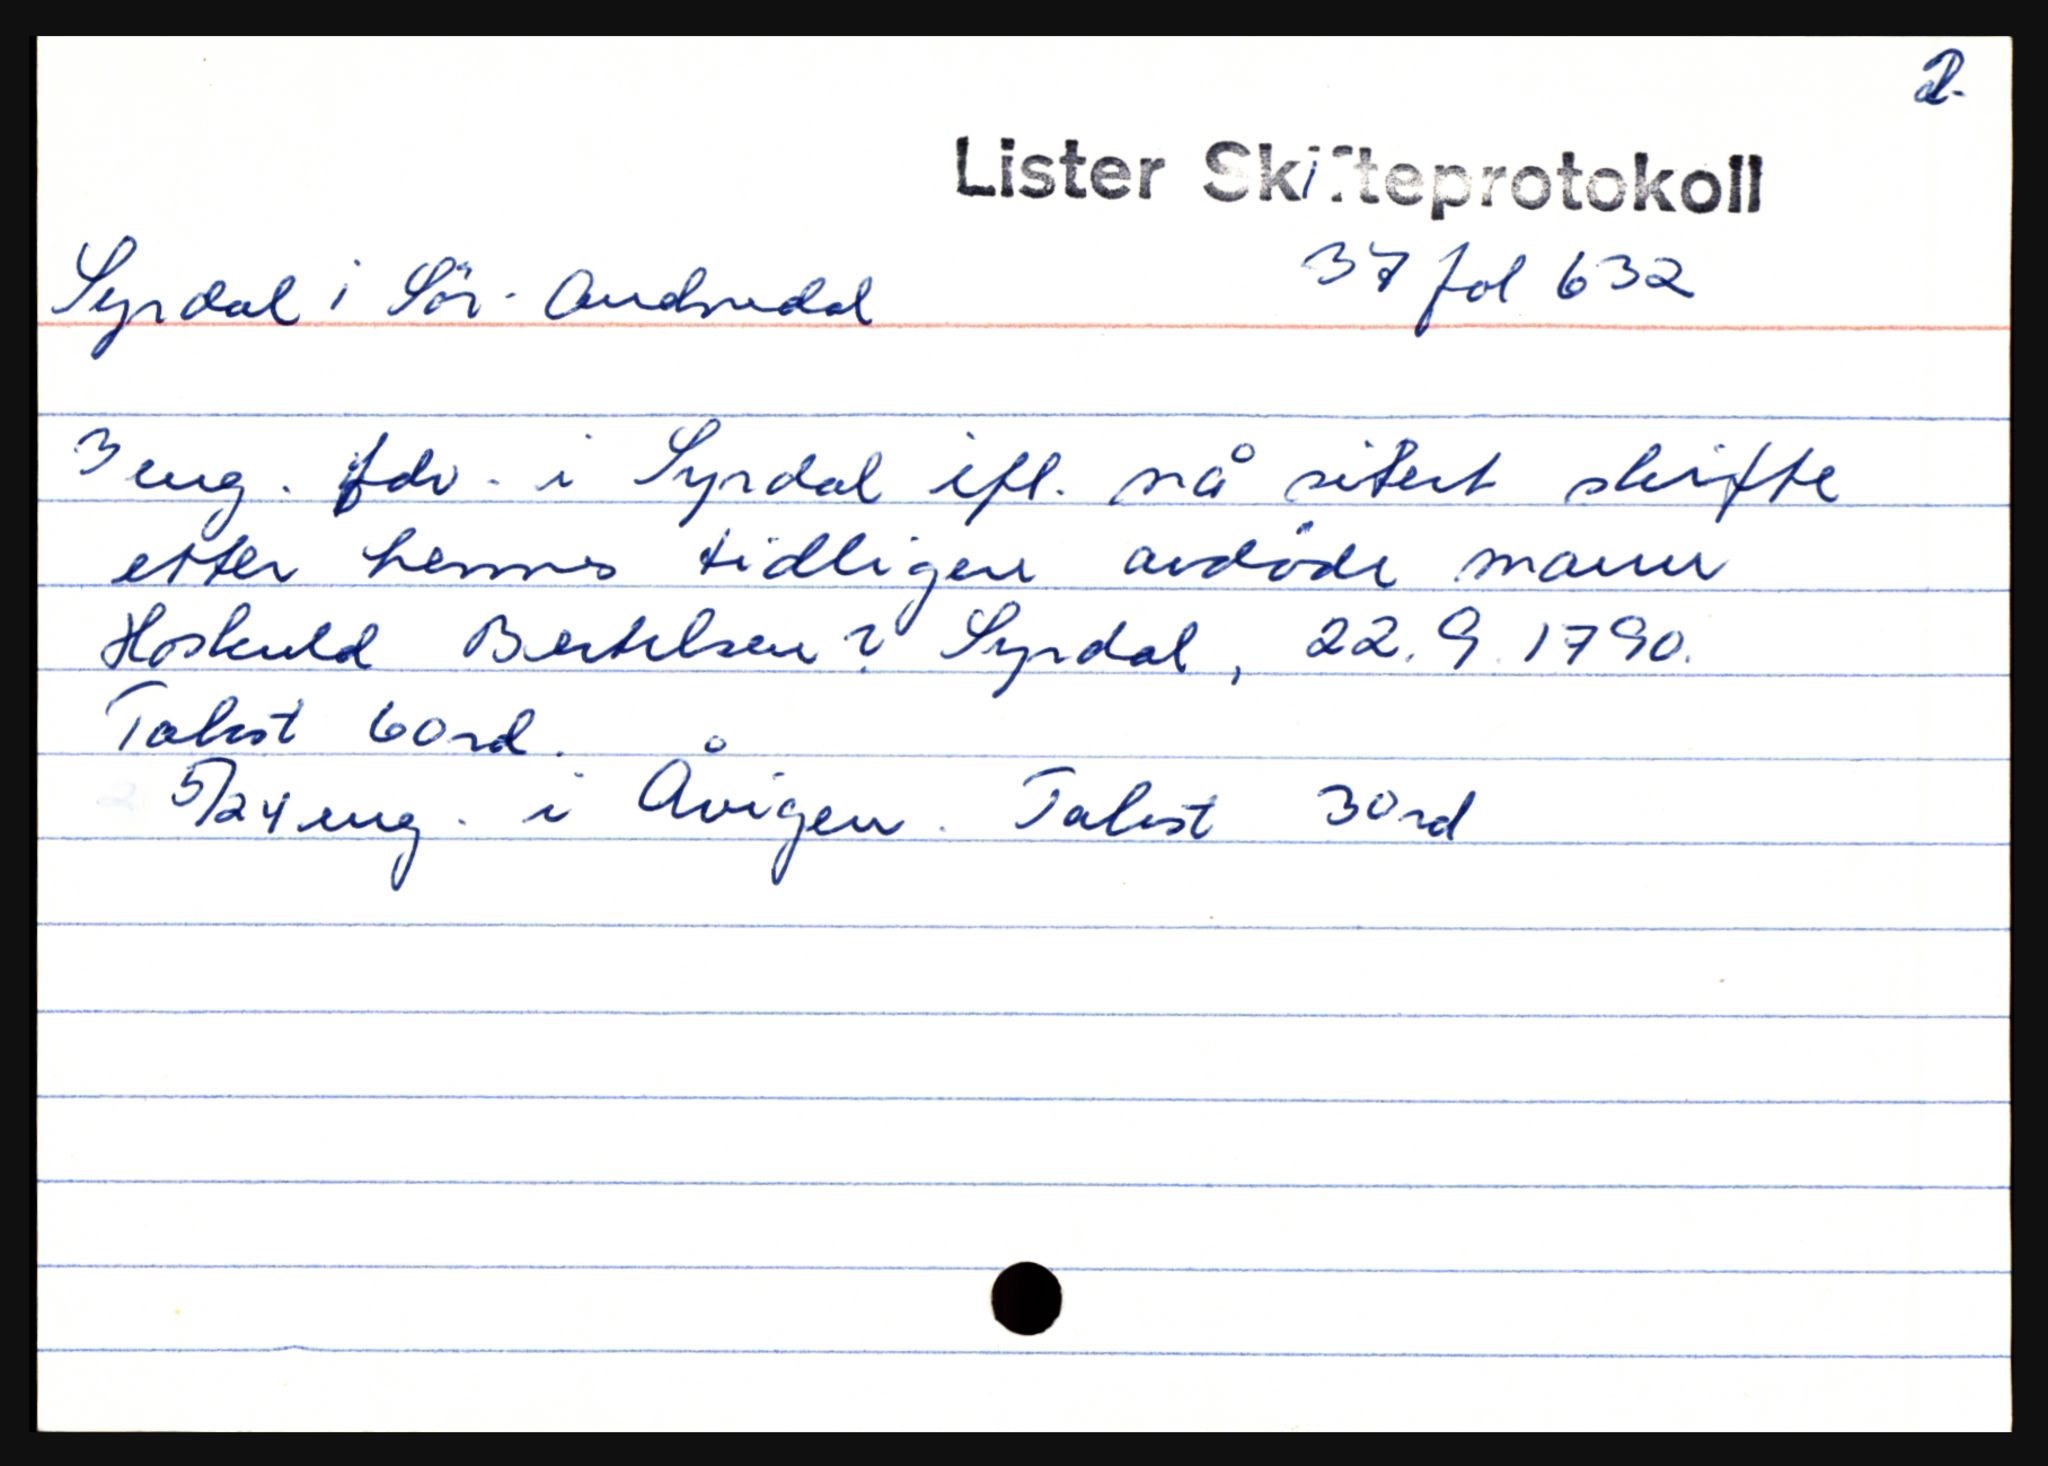 2.
Lister Skifteprotokoll
37 fol 632
Syrdal i Sör-Audnedal
3 eng. fdv. i Syrdal ifl. nå sitert skifte
etter hennes tidligere avdöde mann
Hoskuld Bertelsen ? Syrdal, 22.9.1790.
Takst 60 rd.
5/24 eng. i Åvigen. Takst 30 rd